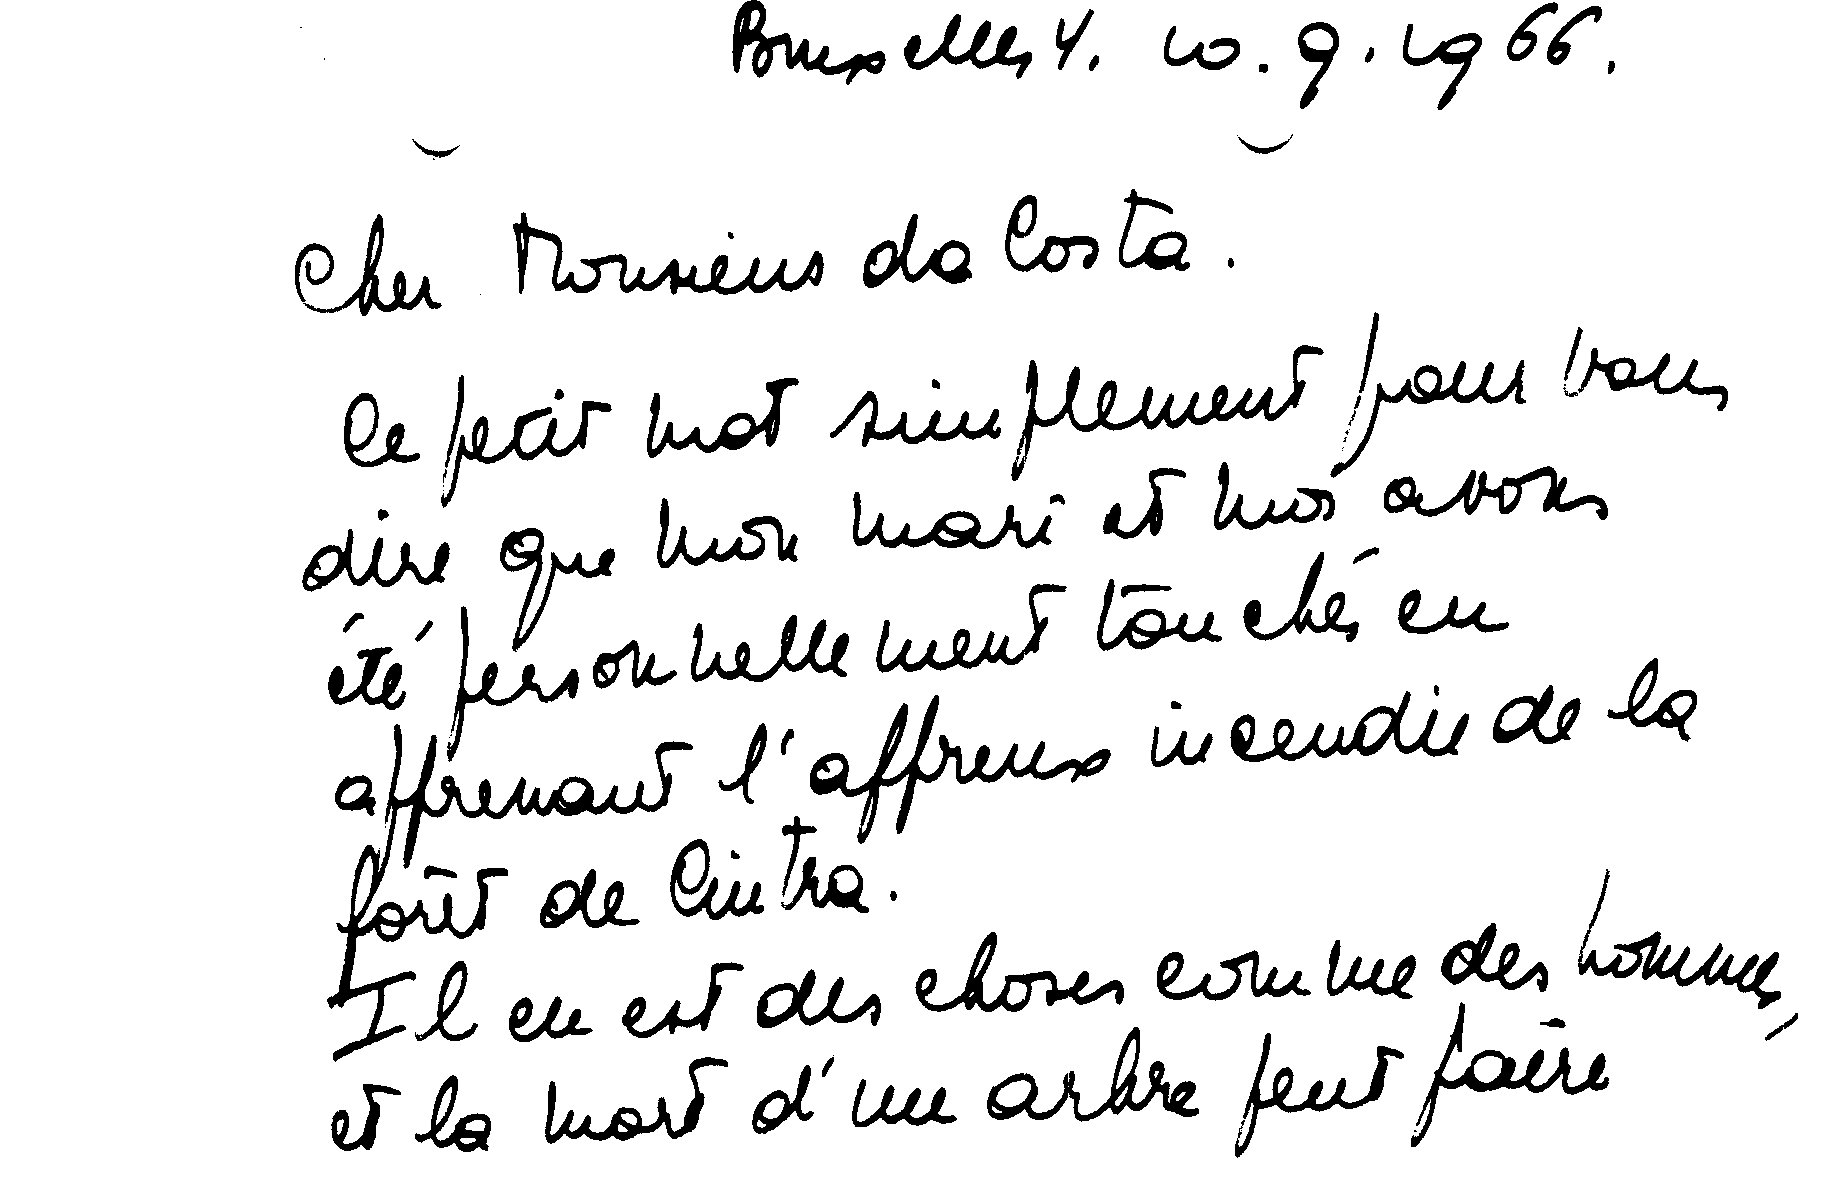 Bruxelles 4. 10.9.1966.
Cher Monsieur da Costa.
Ce petit mot simplement pour vous
dire que mon mari et moi avons
été personnellement touchés en
apprenant l'affreux incendie de la
forêt de Cintra.
Il en est des choses comme des hommes,
et la mort d'un arbre peut faire